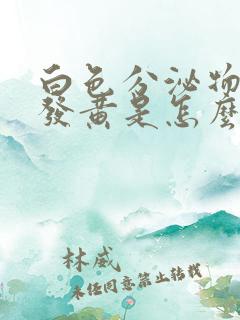 白色分泌物
發黃是怎麼
林威
未经同意禁止转载